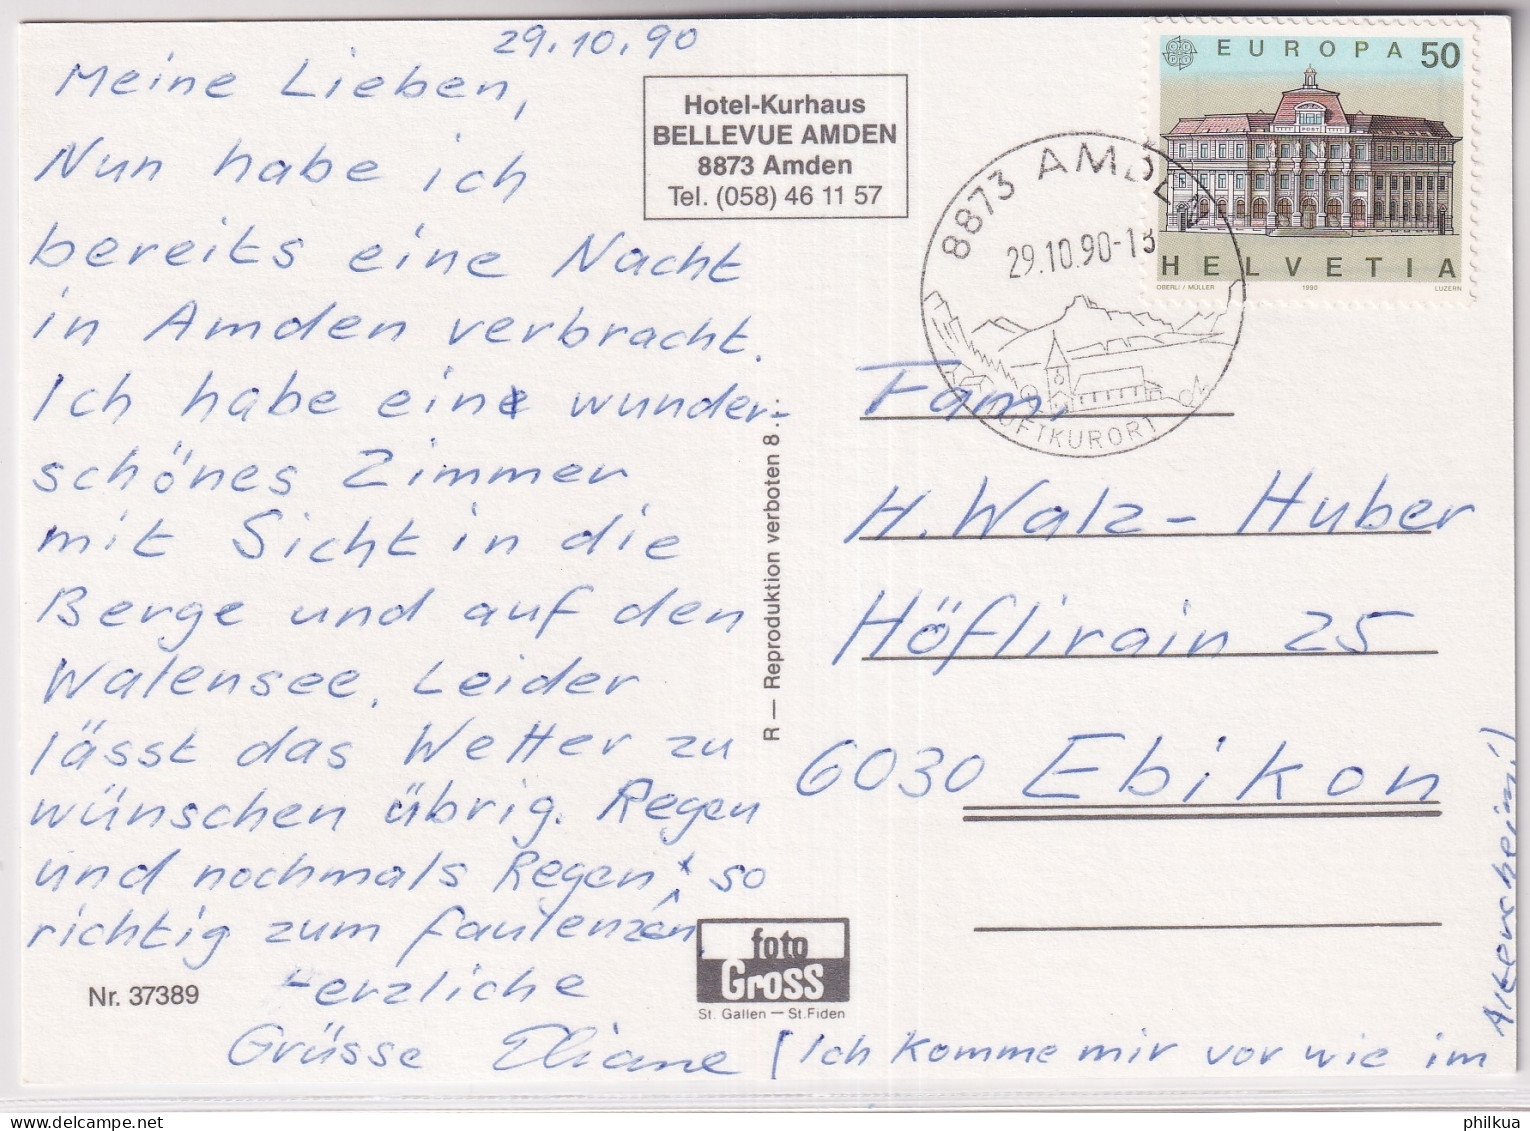 29.10.90
Meine Lieben,
Nun habe ich
bereits eine Nacht
in Amden verbracht.
Ich habe ein wunder-
schönes Zimmer
mit Sicht in die
Berge und auf den
Walensee. Leider
lässt das Wetter zu
wünschen übrig. Regen
und nochmals Regen, so
richtig zum faulenzen.
Herzliche
Grüsse Eliane (Ich komme mir vor wie im
Altersheim!)
Nr. 37389
Hotel-Kurhaus
BELLEVUE AMDEN
8873 Amden
Tel. (058) 46 11 57
R — Reproduktion verboten 8
foto
Gross
St. Gallen — St. Fiden
8873 AMDEN
29.10.90-13
LUFTKURORT
EUROPA 50
POST
HELVETIA
OBERLI / MÜLLER 1990 LUZERN
Fam.
H. Walz-Huber
Höflirain 25
6030 Ebikon
philkua